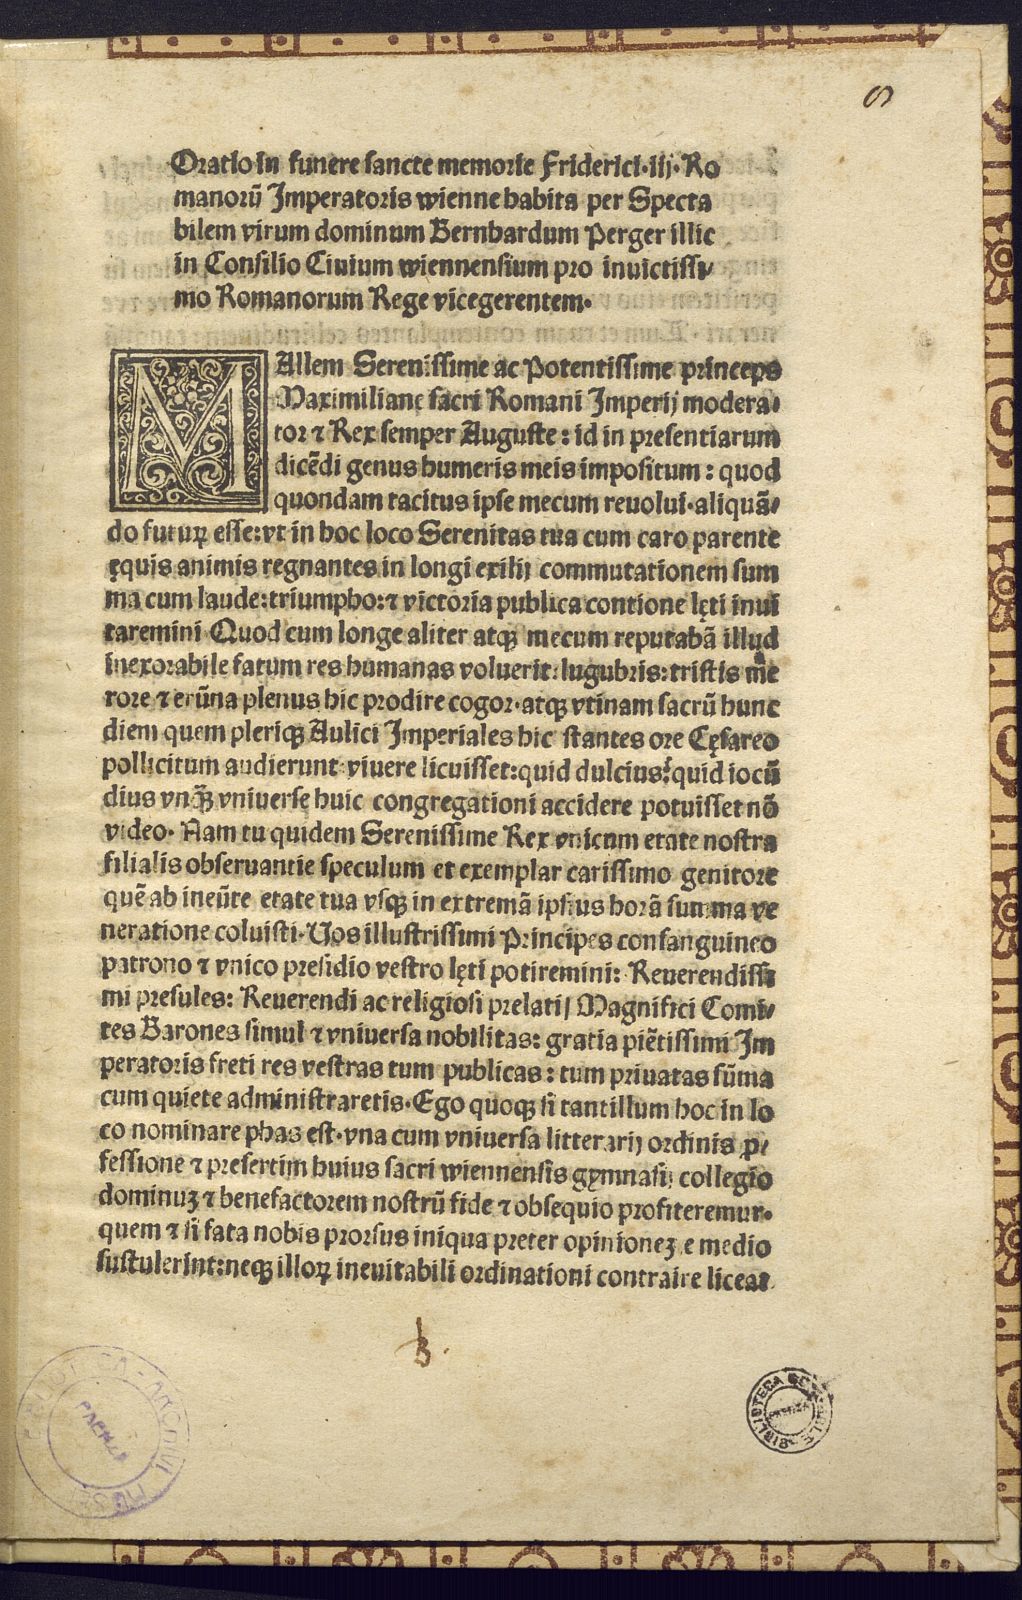 Oratio in funere sancte memorie Friderici·iij·Ro
manorū Imperatoris wienne habita per Specta
bilem virum dominum Bernhardum Perger illic
in Consilio Ciuium wiennensium pro inuictissi⸗
mo Romanorum Rege vicegerentem·
MAllem Serenissime ac Potentissime princeps
Maximiliane sacri Romani Imperij modera⸗
tor ⁊ Rex semper Auguste: id in presentiarum
dicēdi genus humeris meis impositum: quod
quondam tacitus ipse mecum reuolui·aliquā⸗
do futuꝝ esse:vt in hoc loco Serenitas tua cum caro parente
ęquis animis regnantes in longi exilij commutationem sum
ma cum laude:triumpho:⁊ victoria publica contione lęti inui
taremini Quod cum longe aliter atqꝫ mecum reputabā illud
inexorabile fatum res humanas voluerit:lugubris:tristis me
rore ⁊ erūna plenus hic prodire cogor·atqꝫ vtinam sacrū hunc
diem quem pleriqꝫ Aulici Imperiales hic stantes ore Cęsareo
pollicitum audierunt viuere licuisset:quid dulcius:quid iocū
dius vnqꝫ̄ vniuerse huic congregationi accidere potuisset nō
video· Nam tu quidem Serenissime Rex vnicum etate nostra
filialis obseruantie speculum et exemplar carissimo genitore
quē ab ineūte etate tua vsqꝫ in extremā ipsius horā summa ve
neratione coluisti·Uos illustrissimi Principes consanguineo
patrono ⁊ vnico presidio vestro lęti potiremini: Reuerendissi
mi presules: Reuerendi ac religiosi prelati/ Magnifici Comi⸗
tes Barones simul ⁊ vniuersa nobilitas: gratia piētissimi Im
peratoris freti res vestras tum publicas: tum priuatas sūma
cum quiete administraretis·Ego quoqꝫ si tantillum hoc in lo
co nominare phas est·vna cum vniuersa litterarij ordinis ꝓ⸗
fessione ⁊ presertim huius sacri wiennensis gymnasij collegio
dominuꝫ ⁊ benefactorem nostrū fide ⁊ obsequio profiteremur·
quem ⁊ si fata nobis prorsus iniqua preter opinioneꝫ e medio
sustulerint:neqꝫ illoꝝ ineuitabili ordinationi contraire liceat